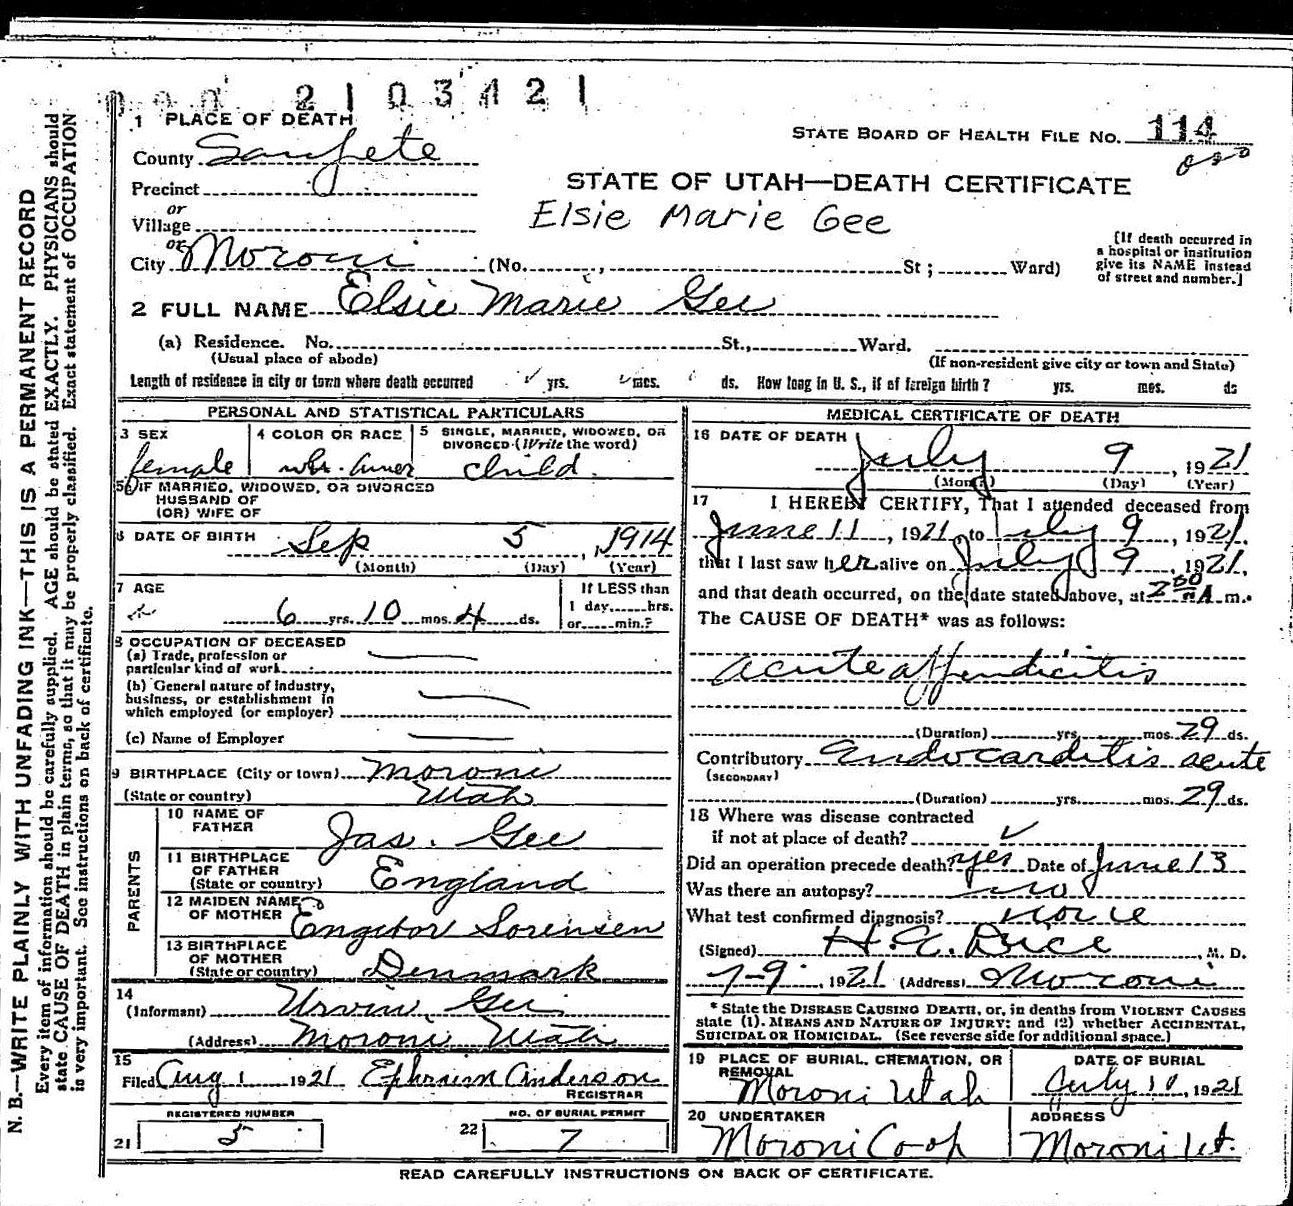 2103421
1 PLACE OF DEATH
STATE BOARD OF HEALTH FILE NO. 114
County Sanpete
Precinct
STATE OF UTAH—DEATH CERTIFICATE
or
Village
Elsie Marie Gee
or
City Moroni (No. , St ; Ward)
[If death occurred in
a hospital or institution
give its NAME instead
of street and number.]
2 FULL NAME Elsie Marie Gee
(a) Residence. No. St., Ward.
(Usual place of abode) (If non-resident give city or town and State)
Length of residence in city or town where death occurred yrs. mos. ds. How long in U. S., if of foreign birth ? yrs. mos. ds
PERSONAL AND STATISTICAL PARTICULARS
3 SEX 4 COLOR OR RACE 5 SINGLE, MARRIED, WIDOWED, OR
DIVORCED (Write the word)
female wh. Amer child.
5a IF MARRIED, WIDOWED, OR DIVORCED
HUSBAND OF
(OR) WIFE OF
6 DATE OF BIRTH Sep 5, 1914
(Month) (Day) (Year)
7 AGE If LESS than
1 day......hrs.
6 yrs. 10 mos. 4 ds. or.....min.?
8 OCCUPATION OF DECEASED
(a) Trade, profession or
particular kind of work
(b) General nature of industry,
business, or establishment in
which employed (or employer)
(c) Name of Employer
9 BIRTHPLACE (City or town) Moroni
(State or country) Utah
PARENTS
10 NAME OF
FATHER Jas. Gee
11 BIRTHPLACE
OF FATHER
(State or country) England
12 MAIDEN NAME
OF MOTHER Engebor Sorensen
13 BIRTHPLACE
OF MOTHER
(State or country) Denmark
14
(Informant) Urvin Gee
(Address) Moroni Utah
15
Filed Aug 1 1921 Ephraim Anderson
REGISTRAR
REGISTERED NUMBER NO. OF BURIAL PERMIT
21 5 22 7
MEDICAL CERTIFICATE OF DEATH
16 DATE OF DEATH
July 9, 1921
(Month) (Day) (Year)
17 I HEREBY CERTIFY, That I attended deceased from
June 11, 1921, to July 9, 1921,
that I last saw her alive on July 9, 1921,
and that death occurred, on the date stated above, at 2 A m.
The CAUSE OF DEATH* was as follows:
acute appendicitis
(Duration) yrs. mos. 29 ds.
Contributory Endocarditis acute
(SECONDARY)
(Duration) yrs. mos. 29 ds.
18 Where was disease contracted
if not at place of death?
Did an operation precede death? yes Date of June 13
Was there an autopsy? no
What test confirmed diagnosis? none
(Signed) H. C. Dice, M. D.
7-9, 1921 (Address) Moroni
* State the DISEASE CAUSING DEATH, or, in deaths from VIOLENT CAUSES
state (1). MEANS AND NATURE OF INJURY; and (2) whether ACCIDENTAL,
SUICIDAL OR HOMICIDAL. (See reverse side for additional space.)
19 PLACE OF BURIAL, CREMATION, OR
REMOVAL DATE OF BURIAL
Moroni Utah July 10, 1921
20 UNDERTAKER ADDRESS
Moroni Co op Moroni Ut.
READ CAREFULLY INSTRUCTIONS ON BACK OF CERTIFICATE.
N. B.—WRITE PLAINLY WITH UNFADING INK—THIS IS A PERMANENT RECORD
Every item of information should be carefully supplied. AGE should be stated EXACTLY. PHYSICIANS should
state CAUSE OF DEATH in plain terms, so that it may be properly classified. Exact statement of OCCUPATION
is very important. See instructions on back of certificate.